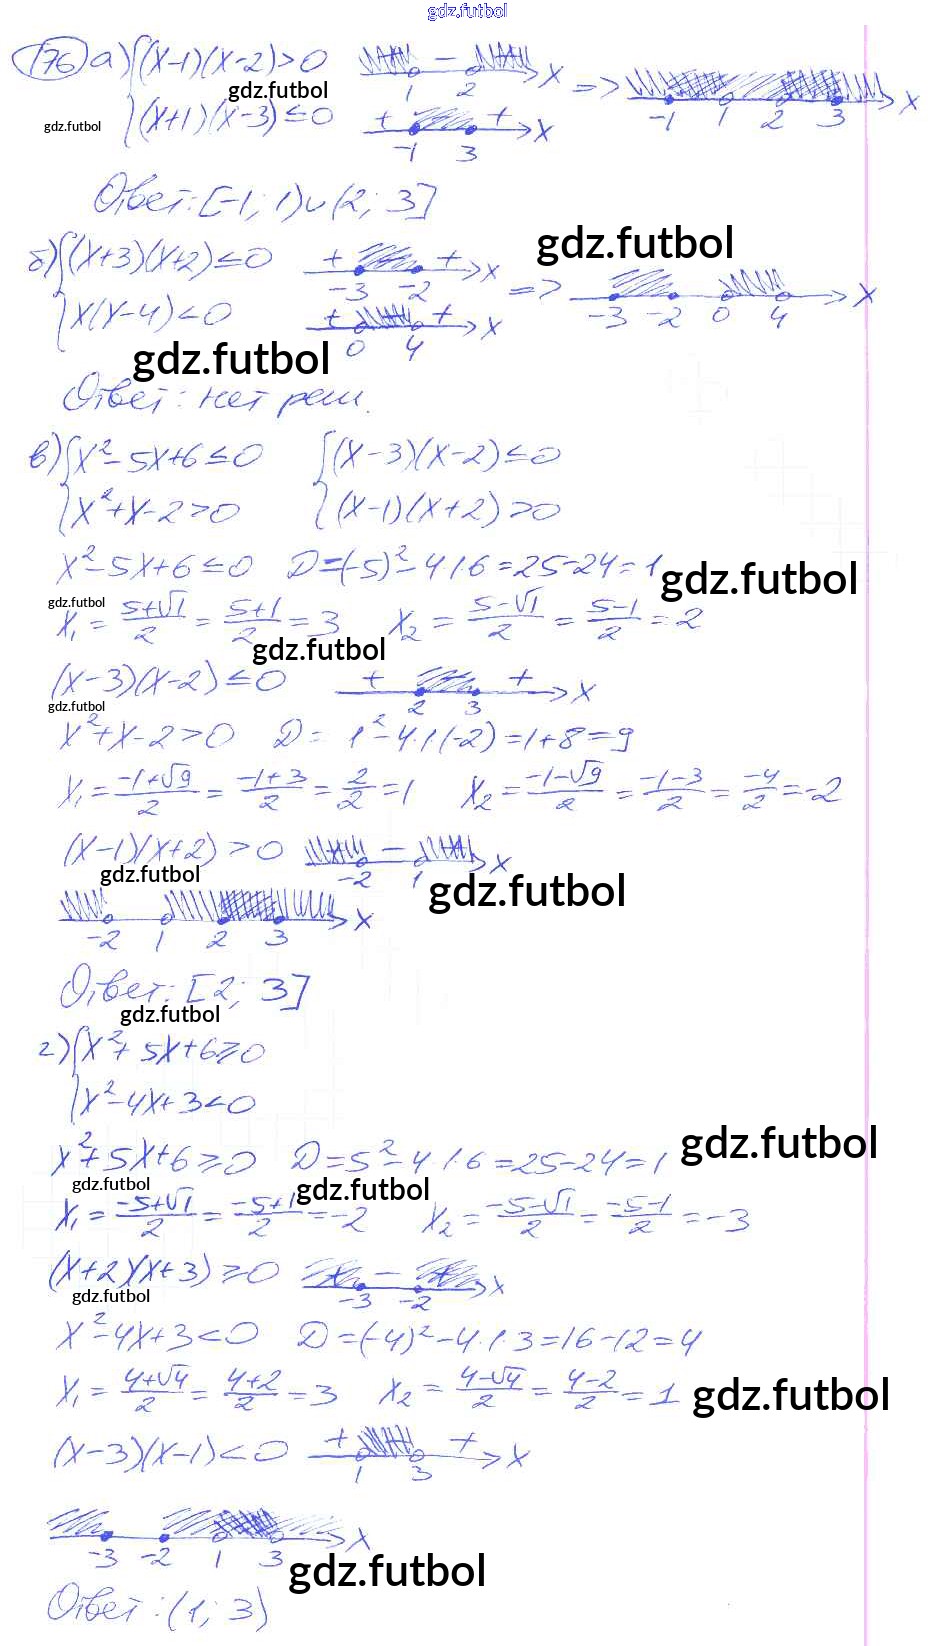 gdz.futbol
176 а) { (x-1)(x-2)>0 — 1 2 x => -1 1 2 3 x
gdz.futbol
gdz.futbol
(x+1)(x-3)≤0 + + -1 3 x
Ответ: [-1; 1)∪(2; 3]
gdz.futbol
б) { (x+3)(x+2)≤0 + + -3 -2 x => -3 -2 0 4 x
x(x-4)<0 + + 0 4 x
gdz.futbol
Ответ: нет реш.
в) { x²-5x+6≤0 { (x-3)(x-2)≤0
x²+x-2>0 (x-1)(x+2)>0
x²-5x+6≤0 D=(-5)²-4·1·6=25-24=1
gdz.futbol
gdz.futbol
x₁ = (5+√1)/2 = (5+1)/2 = 3 x₂ = (5-√1)/2 = (5-1)/2 = 2
gdz.futbol
(x-3)(x-2)≤0 + + 2 3 x
gdz.futbol
x²+x-2>0 D = 1²-4·1(-2)=1+8=9
x₁ = (-1+√9)/2 = (-1+3)/2 = 2/2 = 1 x₂ = (-1-√9)/2 = (-1-3)/2 = -4/2 = -2
(x-1)(x+2)>0 + — + -2 1 x
gdz.futbol
gdz.futbol
-2 1 2 3 x
Ответ: [2; 3]
gdz.futbol
г) { x²+5x+6≥0
x²-4x+3<0
gdz.futbol
x²+5x+6≥0 D=5²-4·1·6=25-24=1
gdz.futbol
gdz.futbol
x₁ = (-5+√1)/2 = (-5+1)/2 = -2 x₂ = (-5-√1)/2 = (-5-1)/2 = -3
(x+2)(x+3)≥0 + — + -3 -2 x
gdz.futbol
x²-4x+3<0 D=(-4)²-4·1·3=16-12=4
x₁ = (4+√4)/2 = (4+2)/2 = 3 x₂ = (4-√4)/2 = (4-2)/2 = 1
gdz.futbol
(x-3)(x-1)<0 + + 1 3 x
-3 -2 1 3 x
gdz.futbol
Ответ: (1; 3)